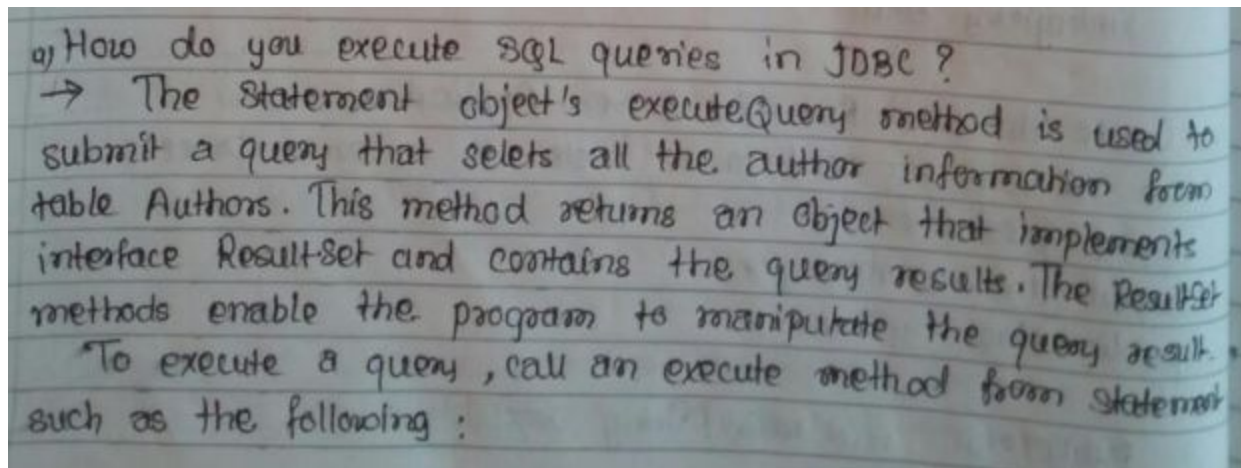 a) How do you execute SQL queries in JDBC ?
→ The Statement object's executeQuery method is used to
submit a query that selets all the author information from
table Authors. This method returns an object that implements
interface Result-Set and contains the query results. The ResultSet
methods enable the program to manipulate the query result.
To execute a query, call an execute method from statement
such as the following :